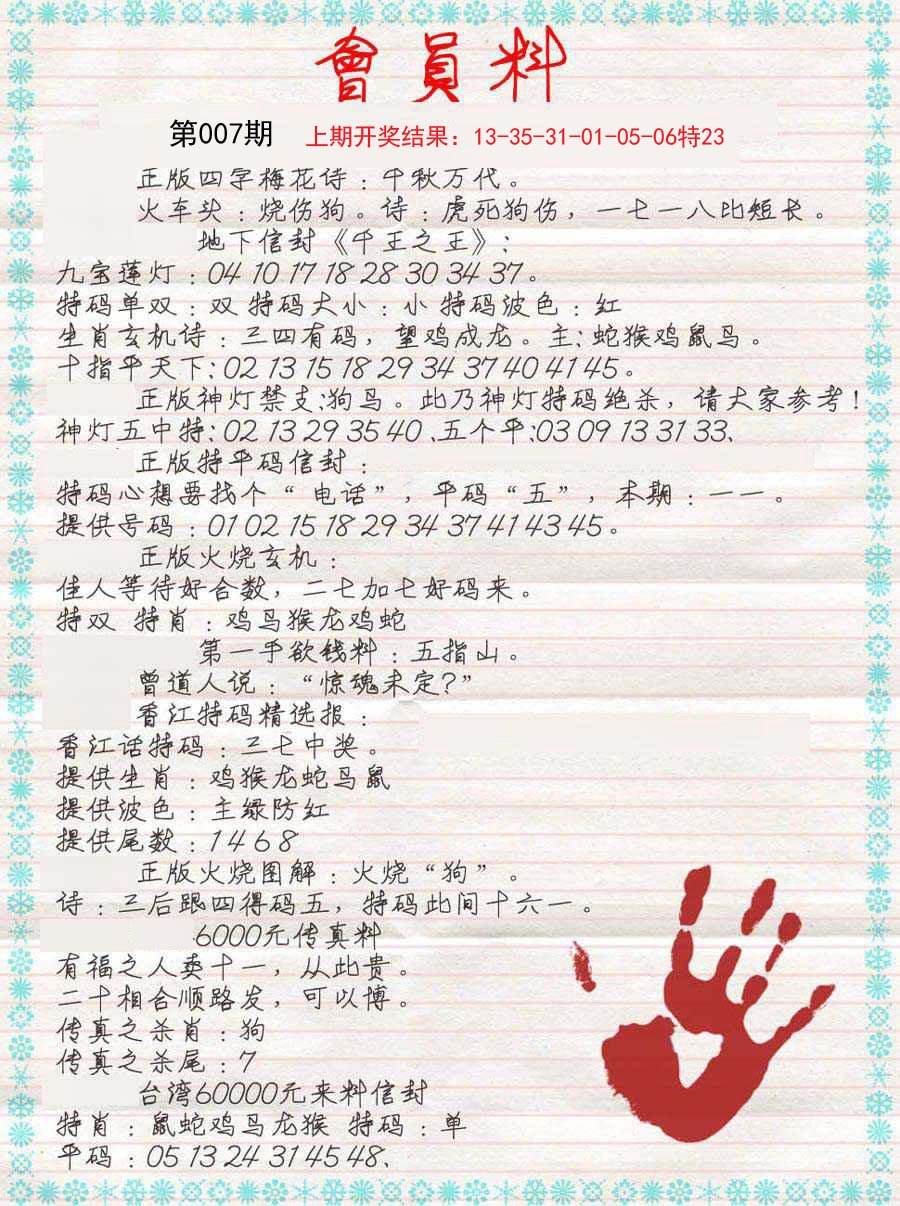 會員料
第007期 上期开奖结果：13-35-31-01-05-06特23
正版四字梅花诗：千秋万代。
火车头：烧伤狗。诗：虎死狗伤，一七一八比短长。
地下信封《千王之王》：
九宝莲灯：04 10 17 18 28 30 34 37。
特码单双：双 特码大小：小 特码波色：红
生肖玄机诗：三四有码，望鸡成龙。主：蛇猴鸡鼠马。
十指平天下：02 13 15 18 29 34 37 40 41 45。
正版神灯禁支：狗马。此乃神灯特码绝杀，请大家参考！
神灯五中特：02 13 29 35 40、五个平：03 09 13 31 33、
正版特平码信封：
特码心想要找个“电话”，平码“五”，本期：一一。
提供号码：01 02 15 18 29 34 37 41 43 45。
正版火烧玄机：
佳人等待好合数，二七加七好码来。
特双 特肖：鸡马猴龙鸡蛇
第一手欲钱料：五指山。
曾道人说：“惊魂未定？”
香江特码精选报：
香江话特码：三七中奖。
提供生肖：鸡猴龙蛇马鼠
提供波色：主绿防红
提供尾数：1 4 6 8
正版火烧图解：火烧“狗”。
诗：三后跟四得码五，特码此间十六一。
6000元传真料
有福之人卖十一，从此贵。
二十相合顺路发，可以博。
传真之杀肖：狗
传真之杀尾：7
台湾60000元来料信封
特肖：鼠蛇鸡马龙猴 特码：单
平码：05 13 24 31 45 48、